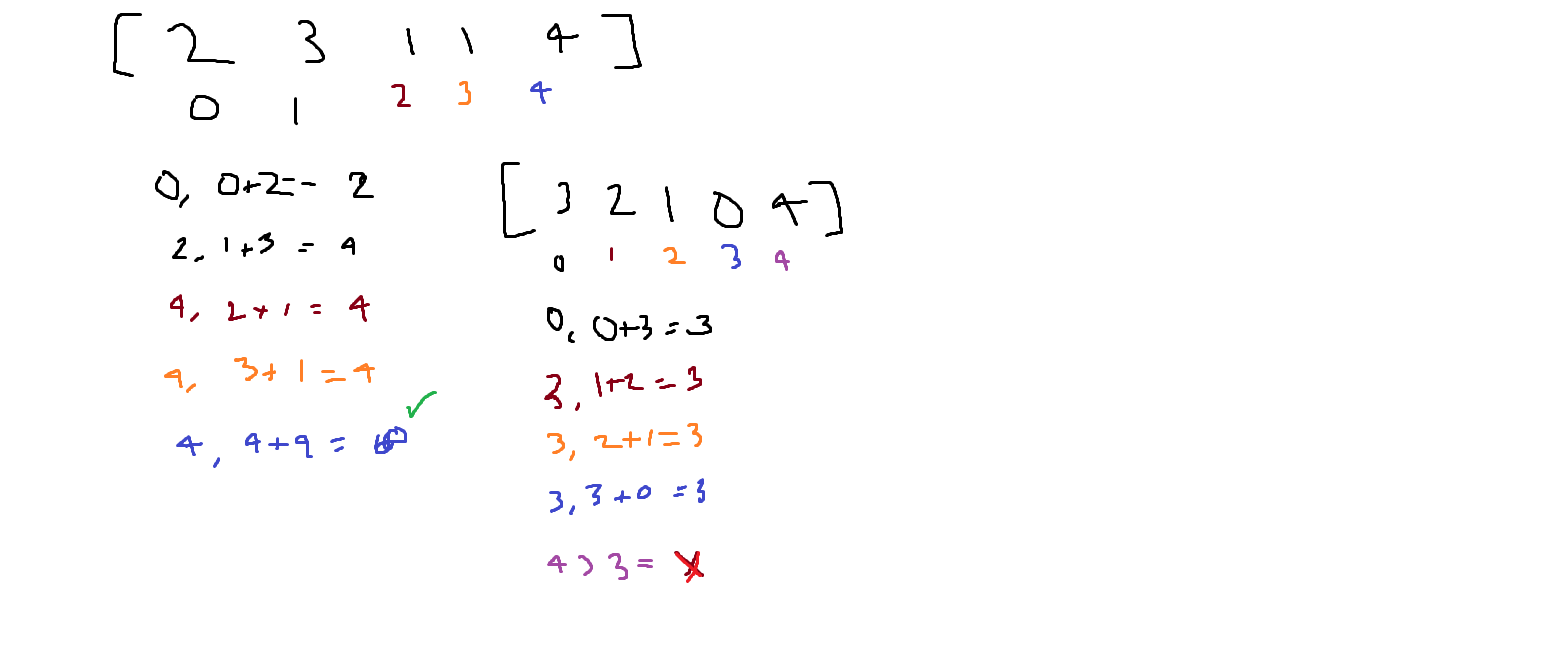 [ 2 3 1 1 4 ]
0 1 2 3 4
0, 0+2 = 2
2, 1+3 = 4
4, 2+1 = 4
4, 3+1 = 4
4, 4+4 = ✓
[ 3 2 1 0 4 ]
0 1 2 3 4
0, 0+3 = 3
3, 1+2 = 3
3, 2+1 = 3
3, 3+0 = 3
4 > 3 = X